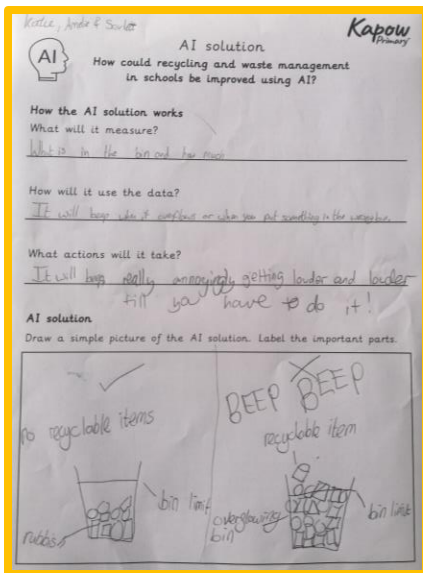 Katie, Andie & Scarlett
Kapow
Primary
AI
AI solution
How could recycling and waste management
in schools be improved using AI?
How the AI solution works
What will it measure?
What is in the bin and how much
How will it use the data?
It will beep when it overflows or when you put something in the wrong bin.
What actions will it take?
It will beep really annoyingly getting louder and louder
till you have to do it!
AI solution
Draw a simple picture of the AI solution. Label the important parts.
no recyclable items
bin limit
rubbish
BEEP BEEP
recyclable item
overglowing
bin
bin limit